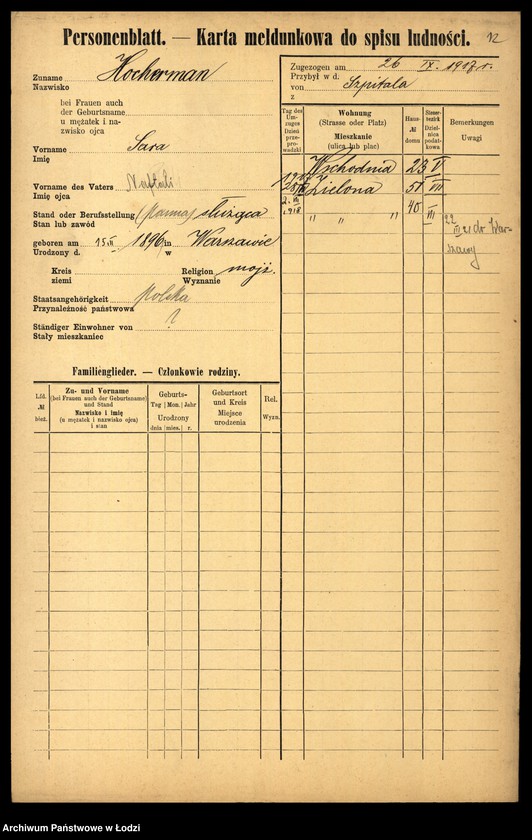 Personenblatt. — Karta meldunkowa do spisu ludności. 12
Zuname
Nazwisko Hocherman
bei Frauen auch
der Geburtsname
u mężatek i na-
zwisko ojca
Vorname
Imię Sara
Vorname des Vaters
Imię ojca Naftali
Stand oder Berufsstellung
Stan lub zawód (Panna) służąca
geboren am 15 III 1896 in
Urodzony d. w Warszawie
Kreis
ziemi
Religion
Wyznanie mojż.
Staatsangehörigkeit
Przynależność państwowa Polska
Ständiger Einwohner von
Stały mieszkaniec ?
Familienglieder. — Członkowie rodziny.
Lfd.
№
bież.
Zu- und Vorname
(bei Frauen auch der Geburtsname)
und Stand
Nazwisko i imię
(u mężatek i nazwisko ojca)
i stan
Geburts-
Tag Mon. Jahr
Urodzony
dnia mies. r.
Geburtsort
und Kreis
Miejsce
urodzenia
Rel.
Wyzn.
Zugezogen am 26 IX. 1917 r.
Przybył w d.
von Szpitala
z
Tag des
Um-
zuges
Dzień
prze-
prowadzki
Wohnung
(Strasse oder Platz)
Mieszkanie
(ulica lub plac)
Haus-
№
domu
Steuer-
bezirk
Dziel-
nica
podat-
kowa
Bemerkungen
Uwagi
Wschodnia 23 V
Zielona 51 III
1918 " " " 40 III
22
III 21 do War-
szawy
Archiwum Państwowe w Łodzi